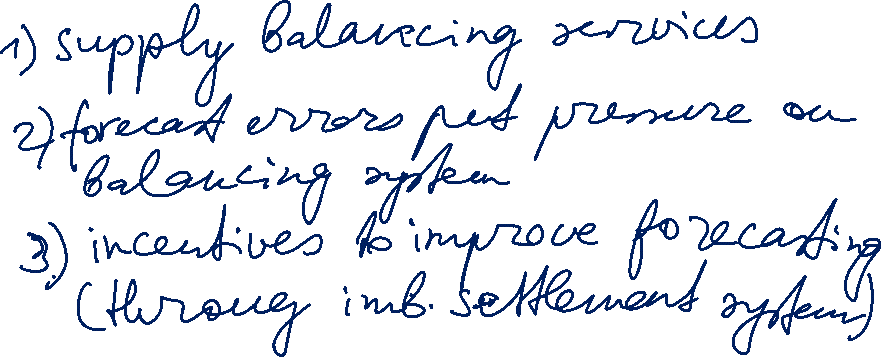 1) supply balancing services
2) forecast errors put pressure on
balancing system
3.) incentives to improve forecasting
(throug imb. settlement system)